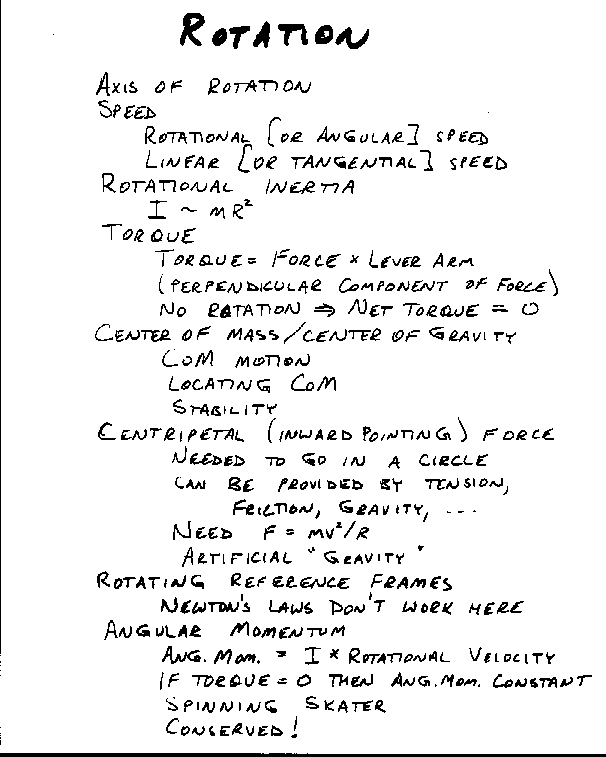 ROTATION
AXIS OF ROTATION
SPEED
ROTATIONAL [OR ANGULAR] SPEED
LINEAR [OR TANGENTIAL] SPEED
ROTATIONAL INERTIA
I ~ MR²
TORQUE
TORQUE = FORCE × LEVER ARM
(PERPENDICULAR COMPONENT OF FORCE)
NO ROTATION ⇒ NET TORQUE = 0
CENTER OF MASS/CENTER OF GRAVITY
COM MOTION
LOCATING COM
STABILITY
CENTRIPETAL (INWARD POINTING) FORCE
NEEDED TO GO IN A CIRCLE
CAN BE PROVIDED BY TENSION,
FRICTION, GRAVITY, ...
NEED F = MV²/R
ARTIFICIAL "GRAVITY"
ROTATING REFERENCE FRAMES
NEWTON'S LAWS DON'T WORK HERE
ANGULAR MOMENTUM
ANG. MOM. = I × ROTATIONAL VELOCITY
IF TORQUE = 0 THEN ANG. MOM. CONSTANT
SPINNING SKATER
CONSERVED!